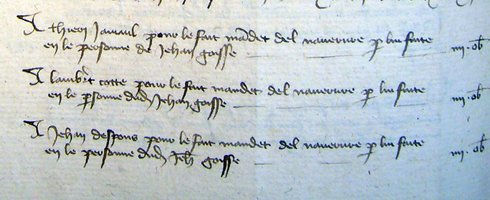 A thieri Jamul pour le fait mandet del naverure p lui faite
en le personne de Jehan goisse iiij ob
A lambert cotte pour le fait mandet del naverure p lui faite
en le psonne dud Jehan goisse iiij ob
A Jehan despons pour le fait mandet del naverure p lui faite
en le personne dud Jeh goisse iiij ob